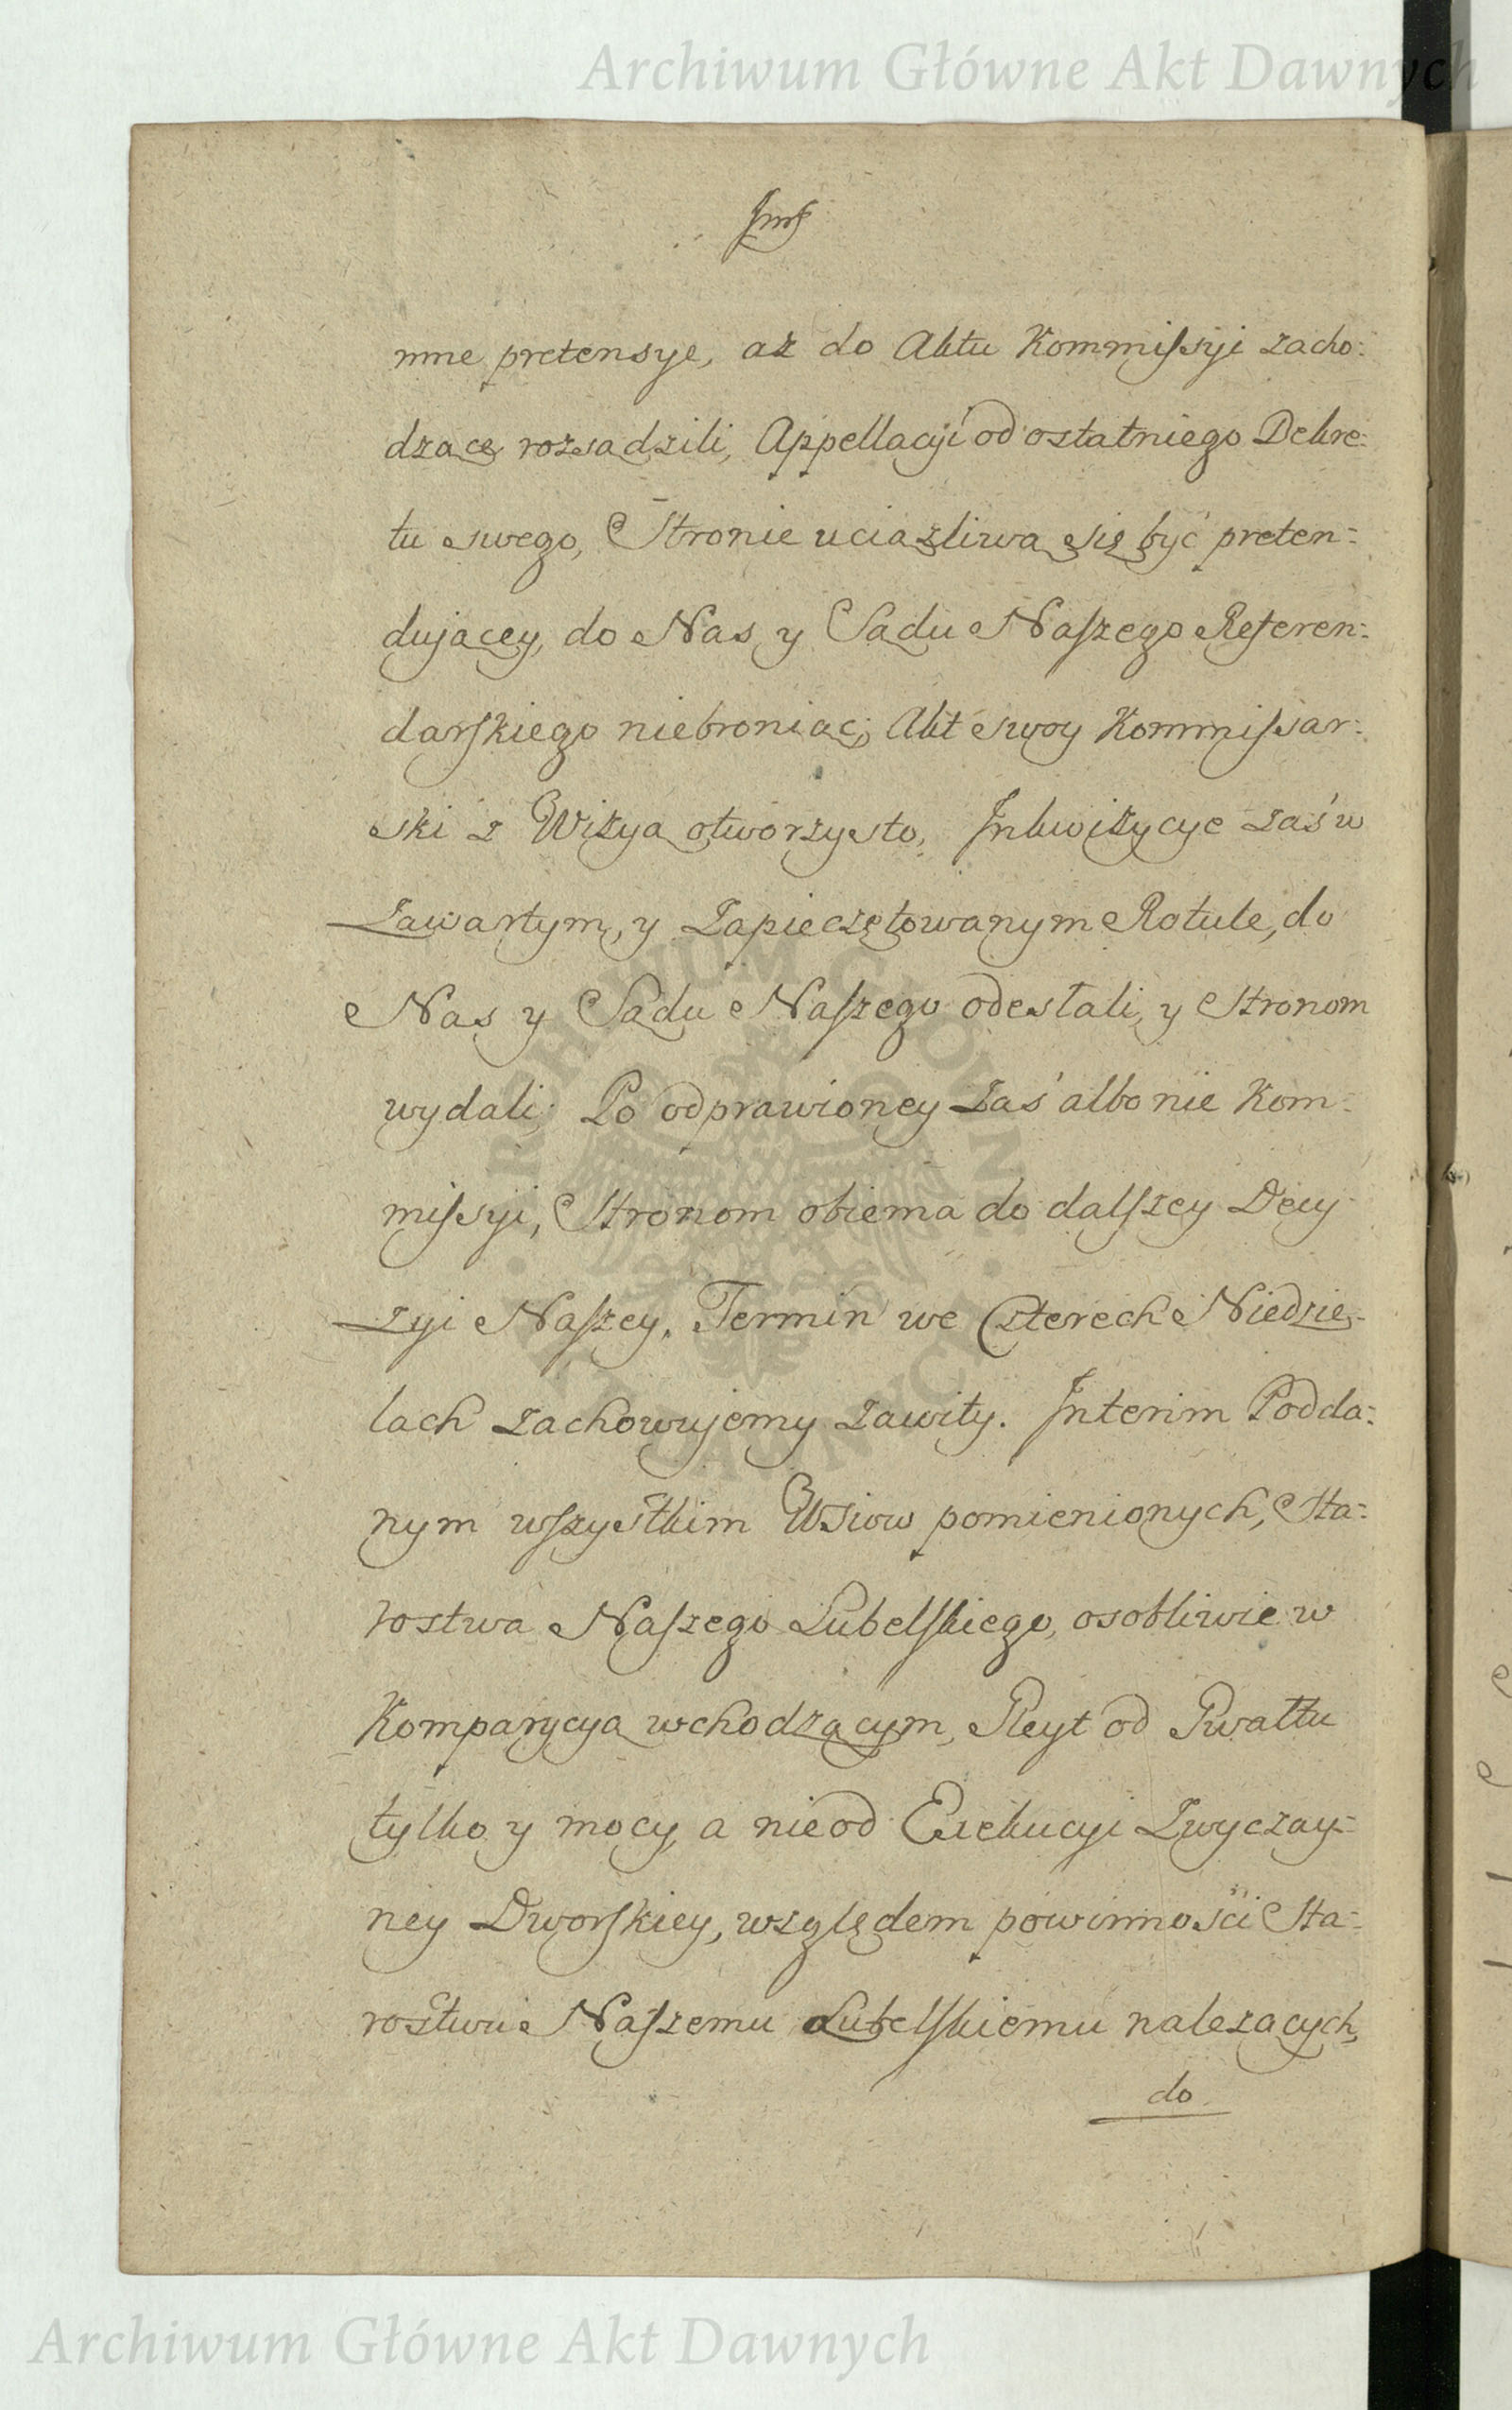 Archiwum Główne Akt Dawnych
mne pretensye, aż do Aktu Kommissyi zacho:
dzące rozsądzili, Appellacyi od ostatniego Dekre:
tu swego, Stronie uciążliwą się być preten:
dującey, do Nas y Sądu Naszego Referen:
darskiego niebroniąc; Akt swoy Kommissar:
ski z Wizyą otworzysto, Inkwizycye zaś w
Zawartym, y Zapieczętowanym Rotule, do
Nas y Sądu Naszego odesłali, y Stronom
wydali; Po odprawioney zaś albo nie Kom:
missyi, Stronom obiema do dalszey Decy
zyi Naszey, Termin we Czterech Niedzie-
lach zachowujemy zawity. Interim Podda:
nym wszystkim Wsiow pomienionych, Sta:
rostwa Naszego Lubelskiego, osobliwie w
Komparycyą wchodzącym, Gleyt od Gwałtu
tylko y mocy, a nie od Exekucyi Zwyczay:
ney Dworskiey, względem powinności Sta:
rostwu Naszemu Lubelskiemu należących,
do
Archiwum Główne Akt Dawnych